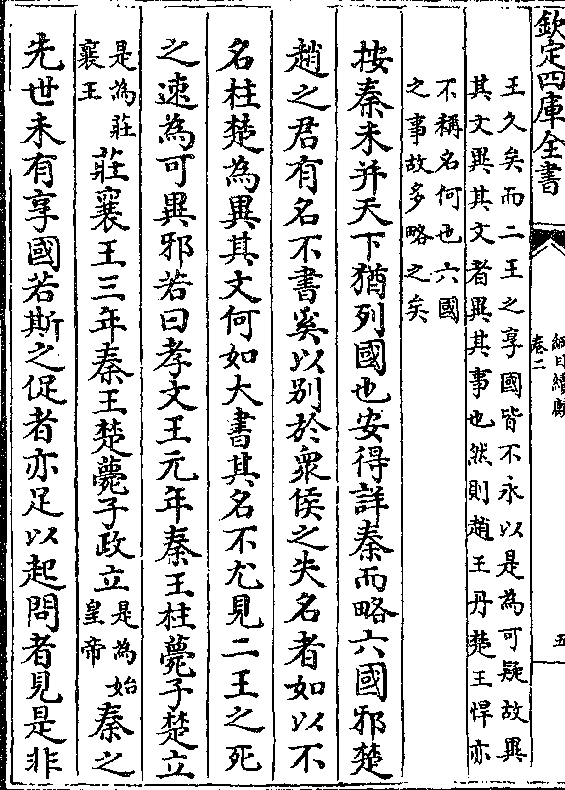 欽定四庫全書
綱目續麟
卷二
五
王久矣而二王之享國皆不永以是為可疑故異
其文異其文者異其事也然則趙王丹楚王悍亦
不稱名何也六國
之事故多略之矣
按秦未并天下猶列國也安得詳秦而略六國邪楚
趙之君有名不書奚以别於衆侯之失名者如以不
名柱楚為異其文何如大書其名不尤見二王之死
之速為可異邪若曰孝文王元年秦王柱薨子楚立
是為莊
襄王
莊襄王三年秦王楚薨子政立
是為始
皇帝
秦之
先世未有享國若斯之促者亦足以起問者見是非